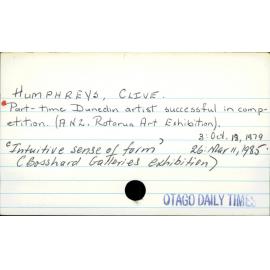 HUMPHREYS, CLIVE.
Part-time Dunedin artist successful in comp-
etition. (A.N.Z. Rotorua Art Exhibition).
3: Oct. 18, 1979
"Intuitive sense of form" 26: Mar 11, 1985.
(Bosshard Galleries exhibition)
OTAGO DAILY TIMES